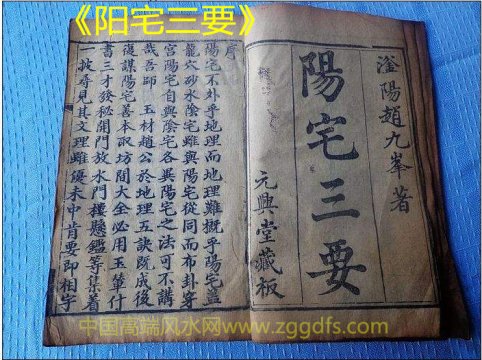 《阳宅三要》
滏陽趙九峯著
陽宅三要
元興堂藏板
序
陽宅不外乎地理而地理難概乎陽宅蓋
龍穴砂水陰宅雖與陽宅從同而布卦穿
宮陽宅自與陰宅各異陽宅之法可不講
哉吾師 玉材趙公於地理五訣既成後
復謀陽宅善本取坊間大全必用玉 什
書三才發秘開門放水門樓懸鑑等集着
披奇見其文理雖優未中肯要即相
中国高端风水网www.zggdfs.com